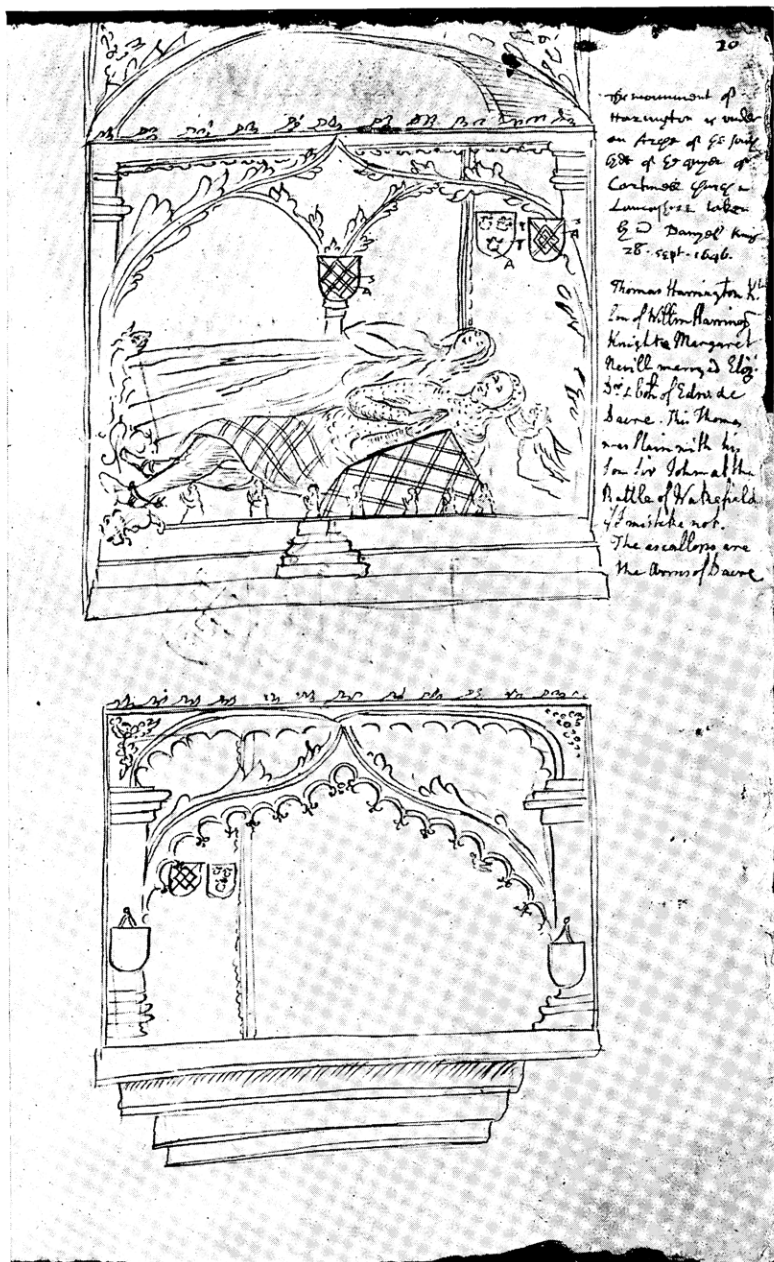 20
The monument of
Harrington is under
an Arch of the South
side of the quyer of
Cartmell Church
Lancashire taken
by Danyell King
28. Sept. 1646.
Thomas Harrington Kt
Son of Willm Harrington
Knight & Margaret
Nevill marryd Eliz:
Dr & of Edw: de
Dacre. This Thomas
was slain with his
Son Sr John at the
Battle of Wakefield
if I mistake not.
The escallops are
the Arms of Dacre
S
A
S
A
A